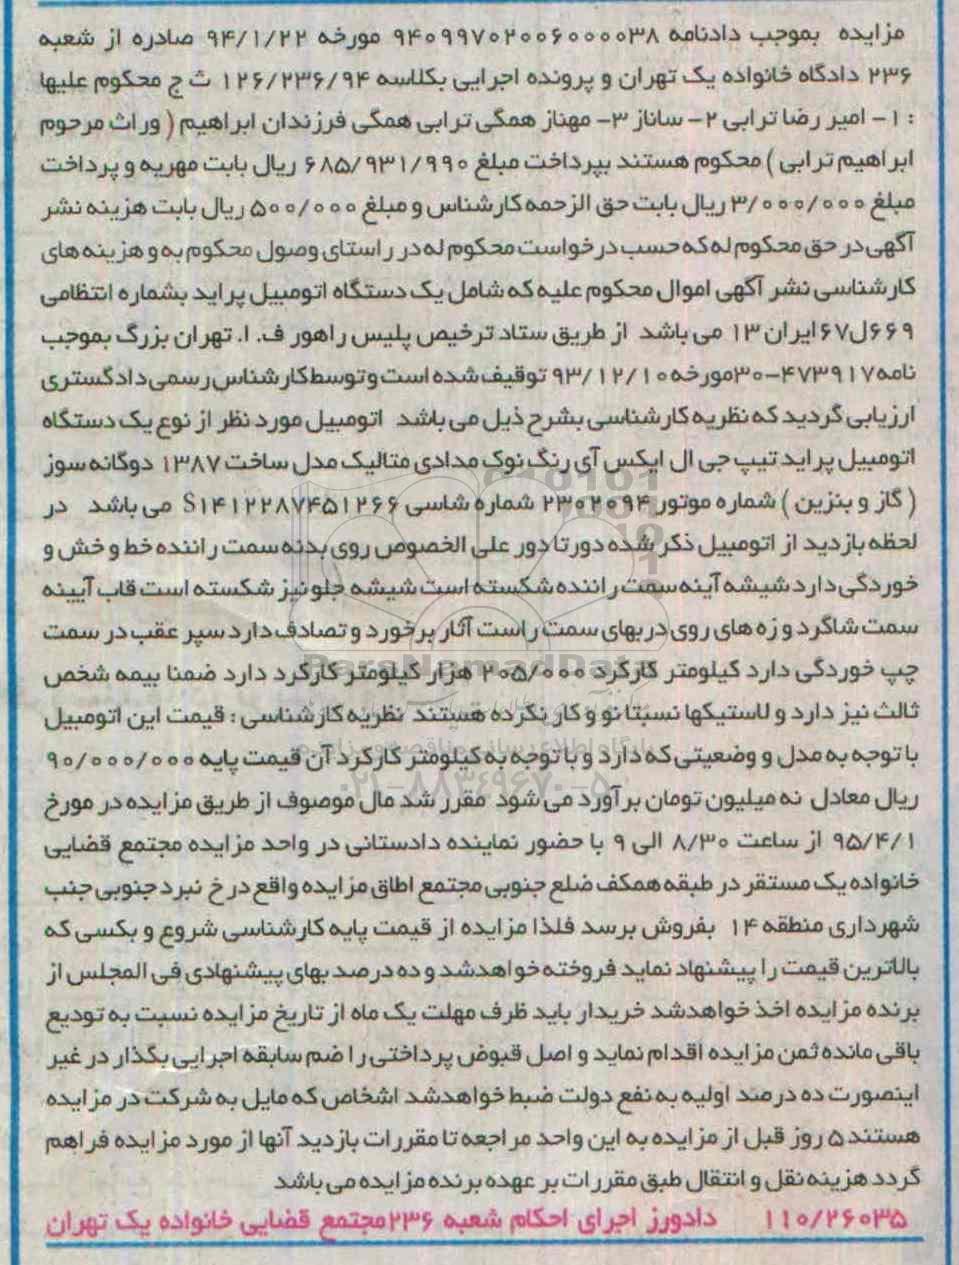 مزایده بموجب دادنامه ۹۴۰۹۹۷۰۲۰۰۶۰۰۰۰۳۸ مورخه ۹۴/۱/۲۲ صادره از شعبه
۲۳۶ دادگاه خانواده یک تهران و پرونده اجرایی بکلاسه ۱۲۶/۲۳۶/۹۴ ث ج محکوم علیها
: ۱- امیر رضا ترابی ۲- ساناز ۳- مهناز همگی ترابی همگی فرزندان ابراهیم ( وراث مرحوم
ابراهیم ترابی ) محکوم هستند بپرداخت مبلغ ۶۸۵/۹۳۱/۹۹۰ ریال بابت مهریه و پرداخت
مبلغ ۳/۰۰۰/۰۰۰ ریال بابت حق الزحمه کارشناس و مبلغ ۵۰۰/۰۰۰ ریال بابت هزینه نشر
آگهی در حق محکوم له که حسب درخواست محکوم له در راستای وصول محکوم به و هزینه های
کارشناسی نشر آگهی اموال محکوم علیه که شامل یک دستگاه اتومبیل پراید بشماره انتظامی
۶۶۹ل۶۷ایران۱۳ می باشد از طریق ستاد ترخیص پلیس راهور ف. ا. تهران بزرگ بموجب
نامه۴۷۳۹۱۷-۳۰مورخه۹۳/۱۲/۱۰ توقیف شده است و توسط کارشناس رسمی دادگستری
ارزیابی گردید که نظریه کارشناسی بشرح ذیل می باشد اتومبیل مورد نظر از نوع یک دستگاه
اتومبیل پراید تیپ جی ال ایکس آی رنگ نوک مدادی متالیک مدل ساخت ۱۳۸۷ دوگانه سوز
( گاز و بنزین ) شماره موتور ۲۳۰۲۰۹۴ شماره شاسی S۱۴۱۲۲۸۷۴۵۱۲۶۶ می باشد در
لحظه بازدید از اتومبیل ذکر شده دور تا دور علی الخصوص روی بدنه سمت راننده خط و خش و
خوردگی دارد شیشه آینه سمت راننده شکسته است شیشه جلو نیز شکسته است قاب آیینه
سمت شاگرد و زه های روی دربهای سمت راست آثار برخورد و تصادف دارد سپر عقب در سمت
چپ خوردگی دارد کیلومتر کارکرد ۲۰۵/۰۰۰ هزار کیلومتر کارکرد دارد ضمنا بیمه شخص
ثالث نیز دارد و لاستیکها نسبتا نو و کار نکرده هستند نظریه کارشناسی : قیمت این اتومبیل
با توجه به مدل و وضعیتی که دارد و با توجه به کیلومتر کارکرد آن قیمت پایه ۹۰/۰۰۰/۰۰۰
ریال معادل نه میلیون تومان برآورد می شود مقرر شد مال موصوف از طریق مزایده در مورخ
۹۵/۴/۱ از ساعت ۸/۳۰ الی ۹ با حضور نماینده دادستانی در واحد مزایده مجتمع قضایی
خانواده یک مستقر در طبقه همکف ضلع جنوبی مجتمع اطاق مزایده واقع در خ نبرد جنوبی جنب
شهرداری منطقه ۱۴ بفروش برسد فلذا مزایده از قیمت پایه کارشناسی شروع و بکسی که
بالاترین قیمت را پیشنهاد نماید فروخته خواهدشد و ده درصد بهای پیشنهادی فی المجلس از
برنده مزایده اخذ خواهدشد خریدار باید ظرف مهلت یک ماه از تاریخ مزایده نسبت به تودیع
باقی مانده ثمن مزایده اقدام نماید و اصل قبوض پرداختی را ضم سابقه اجرایی بگذار در غیر
اینصورت ده درصد اولیه به نفع دولت ضبط خواهدشد اشخاص که مایل به شرکت در مزایده
هستند ۵ روز قبل از مزایده به این واحد مراجعه تا مقررات بازدید آنها از مورد مزایده فراهم
گردد هزینه نقل و انتقال طبق مقررات بر عهده برنده مزایده می باشد
۱۱۰/۲۶۰۳۵ دادورز اجرای احکام شعبه ۲۳۶مجتمع قضایی خانواده یک تهران
ParsNamadData
۰۲۱-۸۸۳۴۹۶۷۰-۵